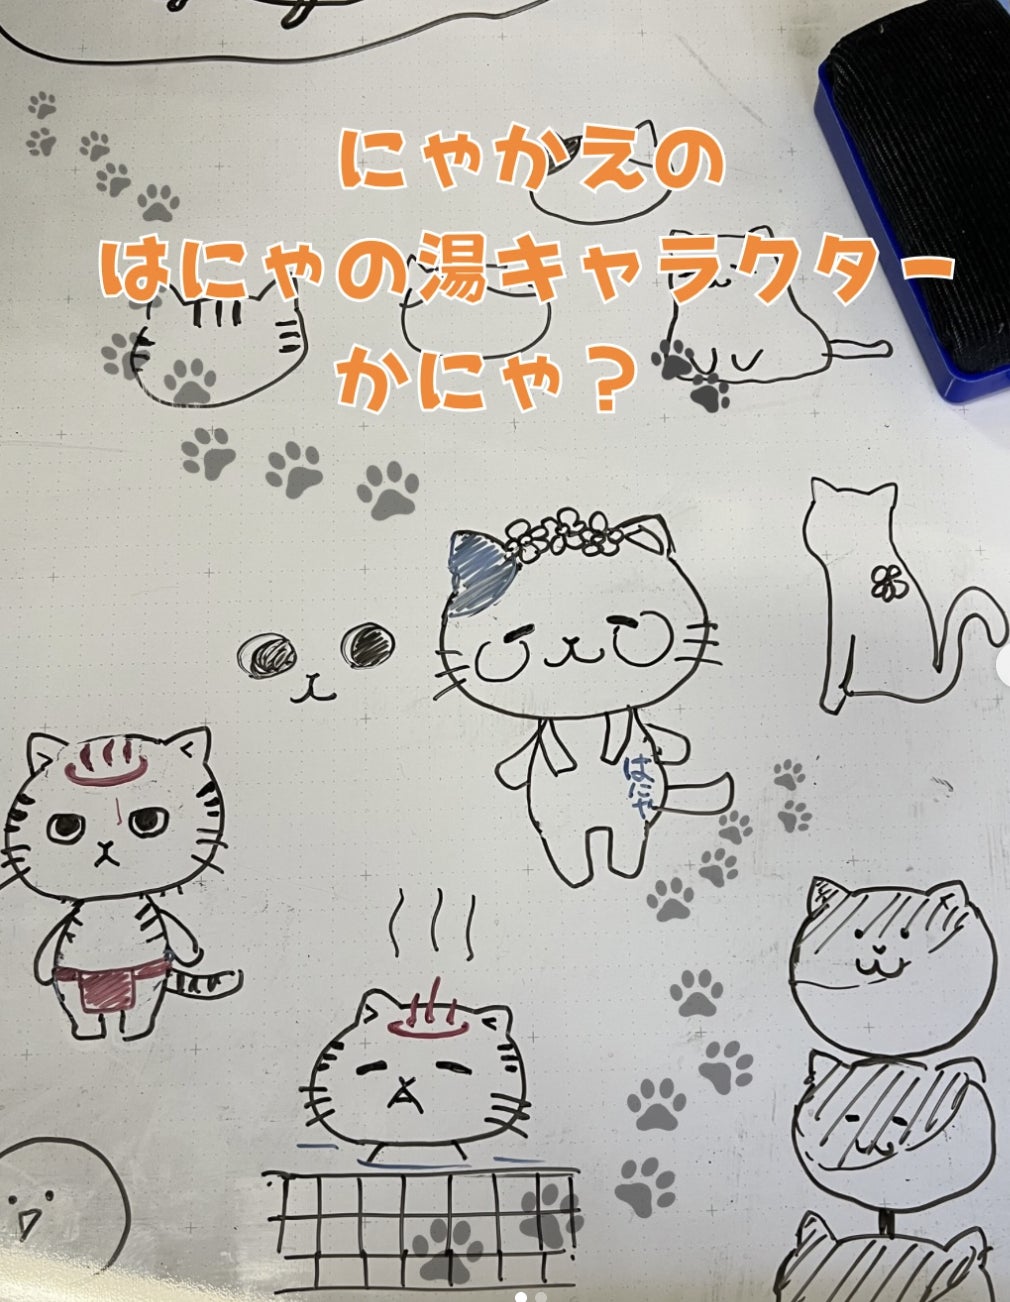 にゃかえの
はにゃの湯キャラクター
かにゃ？
はにゃ